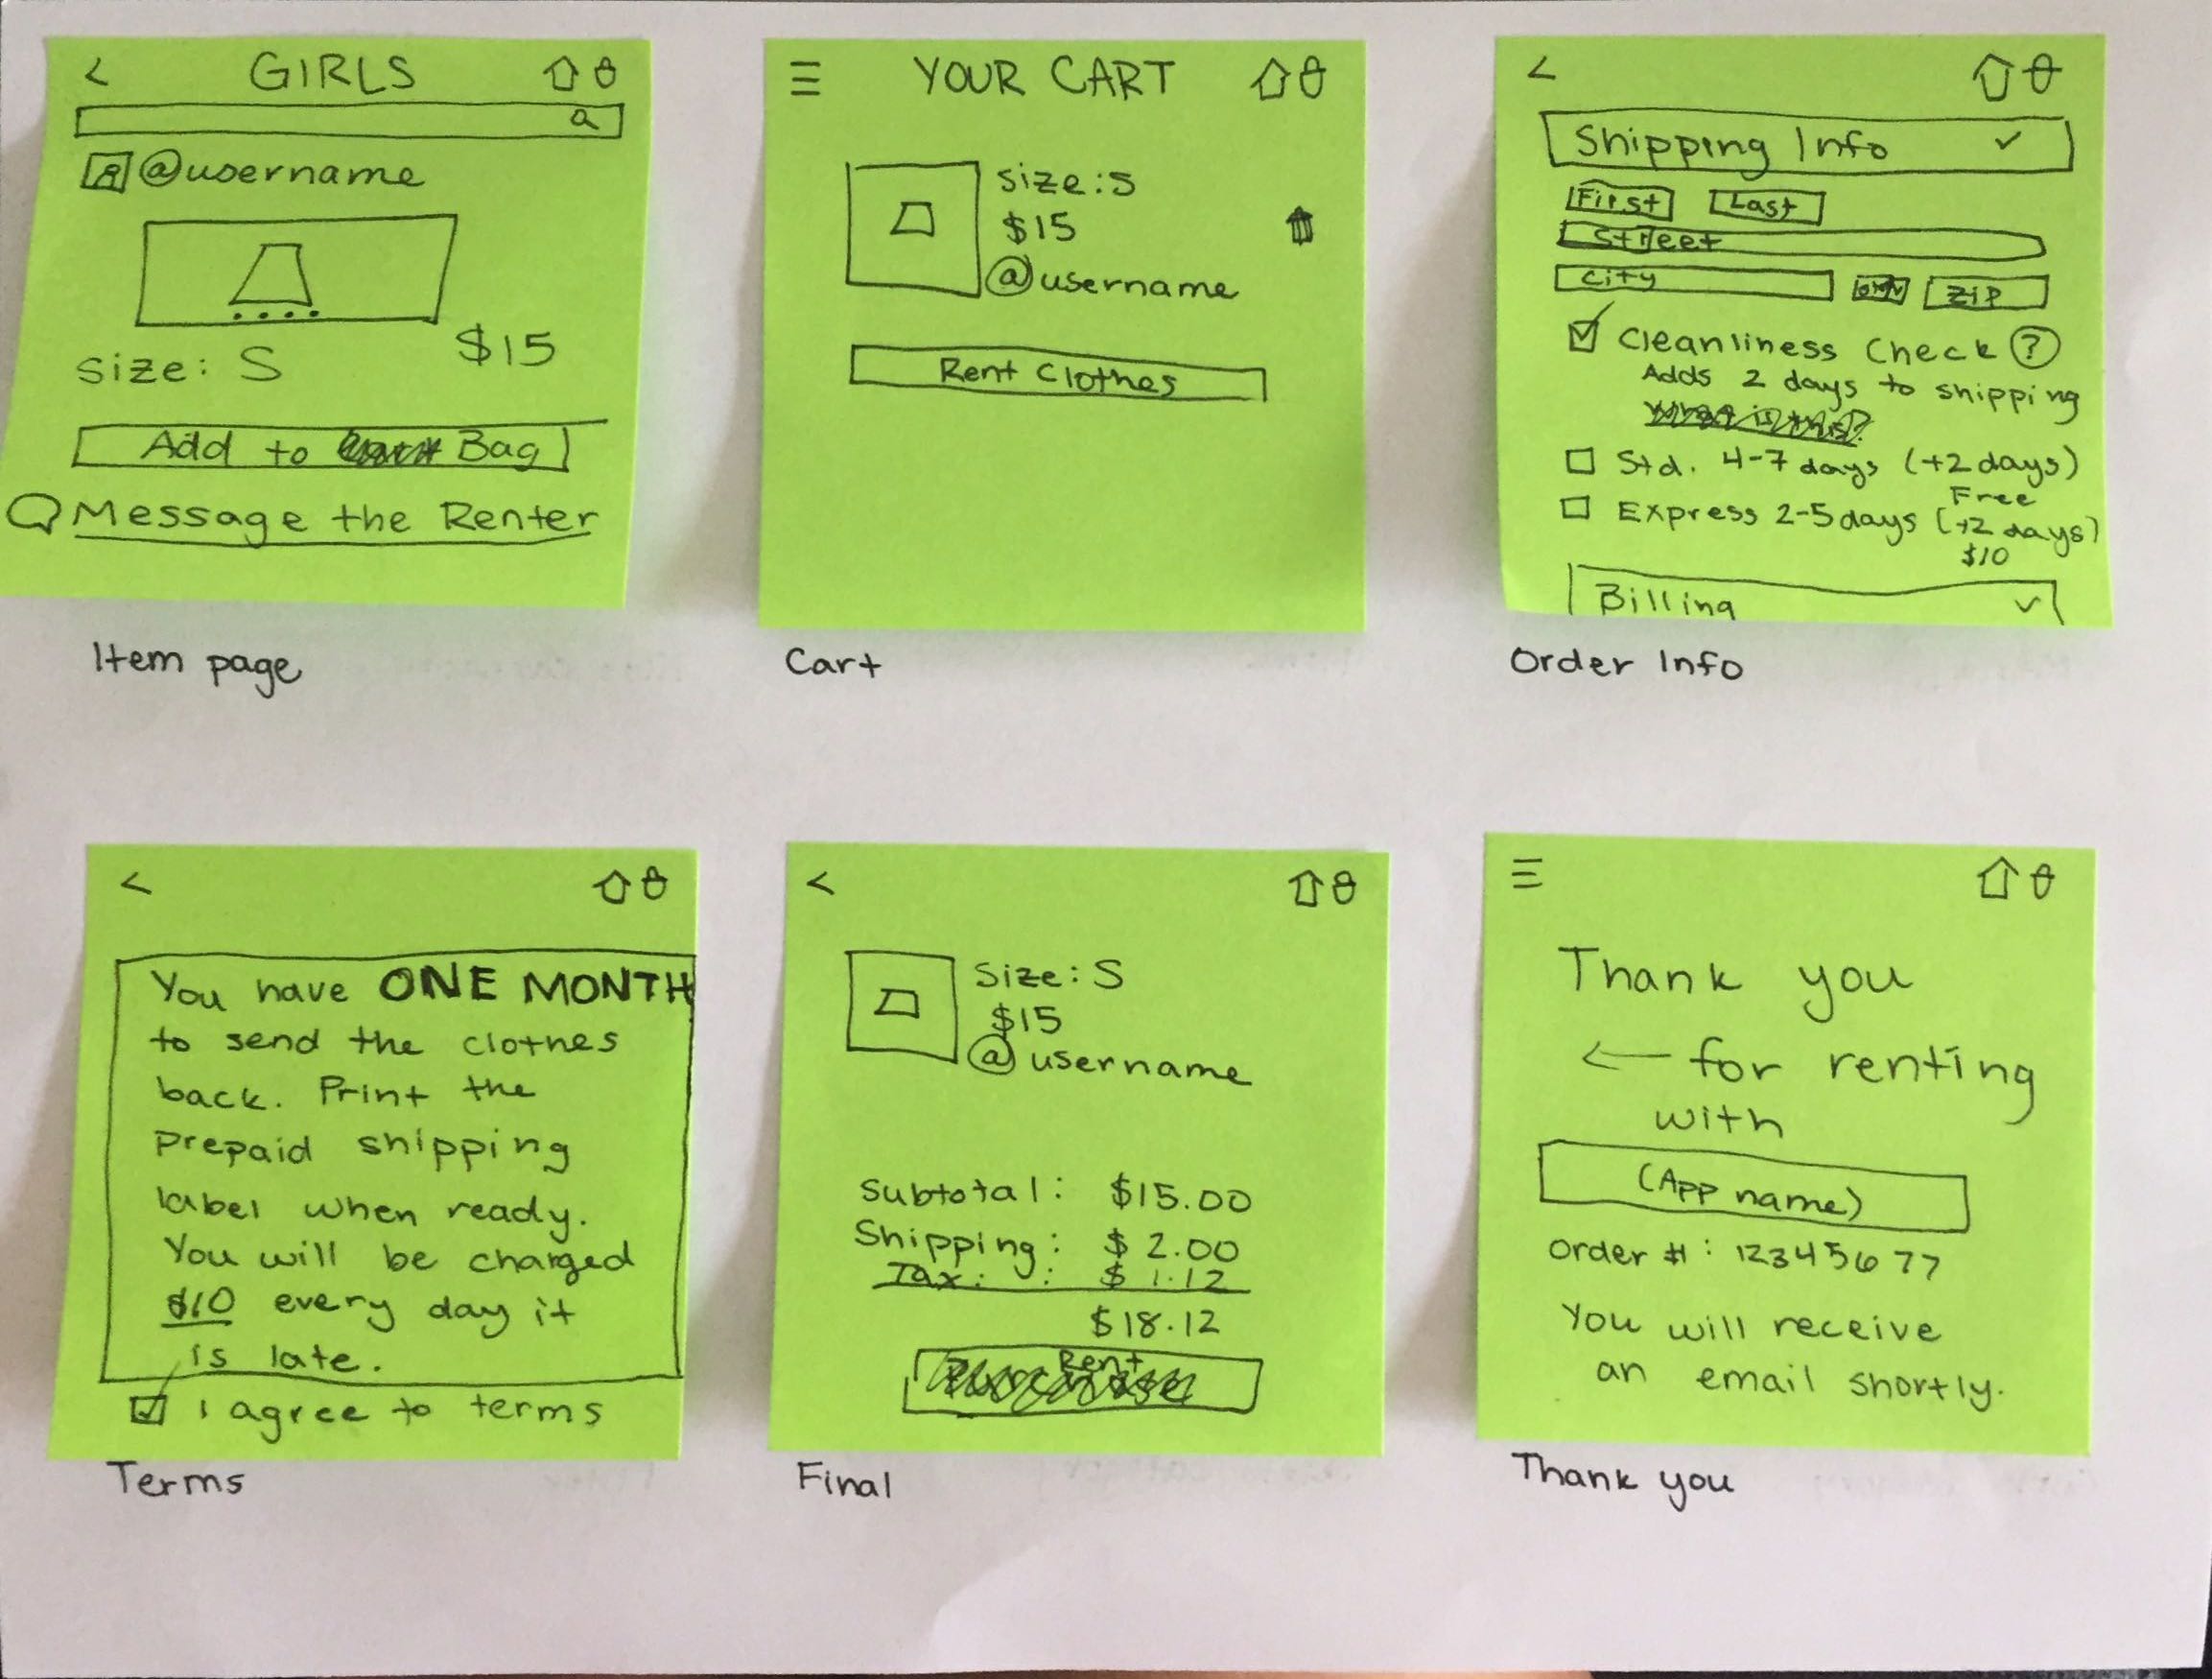 GIRLS
@username
$15
Size: S
Add to Bag
Message the Renter
Item page
YOUR CART
Size: S
$15
@username
Rent Clothes
Cart
Shipping Info
First Last
Street
City Zip
Cleanliness Check ?
Adds 2 days to shipping
Std. 4-7 days (+2 days)
Free
Express 2-5 days (+2 days)
$10
Billing
Order Info
You have ONE MONTH
to send the clothes
back. Print the
prepaid shipping
label when ready.
You will be charged
$10 every day it
is late.
I agree to terms
Terms
Size: S
$15
@username
Subtotal: $15.00
Shipping: $ 2.00
Tax: : $ 1.12
$18.12
Rent
Final
Thank you
for renting
with
(App name)
Order #: 12345677
You will receive
an email shortly.
Thank you